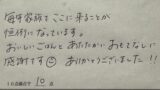 毎年家族でここに来ることが
恒例になっています。
おいしいごはんとあたたかいおもてなしに
感謝です☺ ありがとうございました!!
10点満点中 10 点